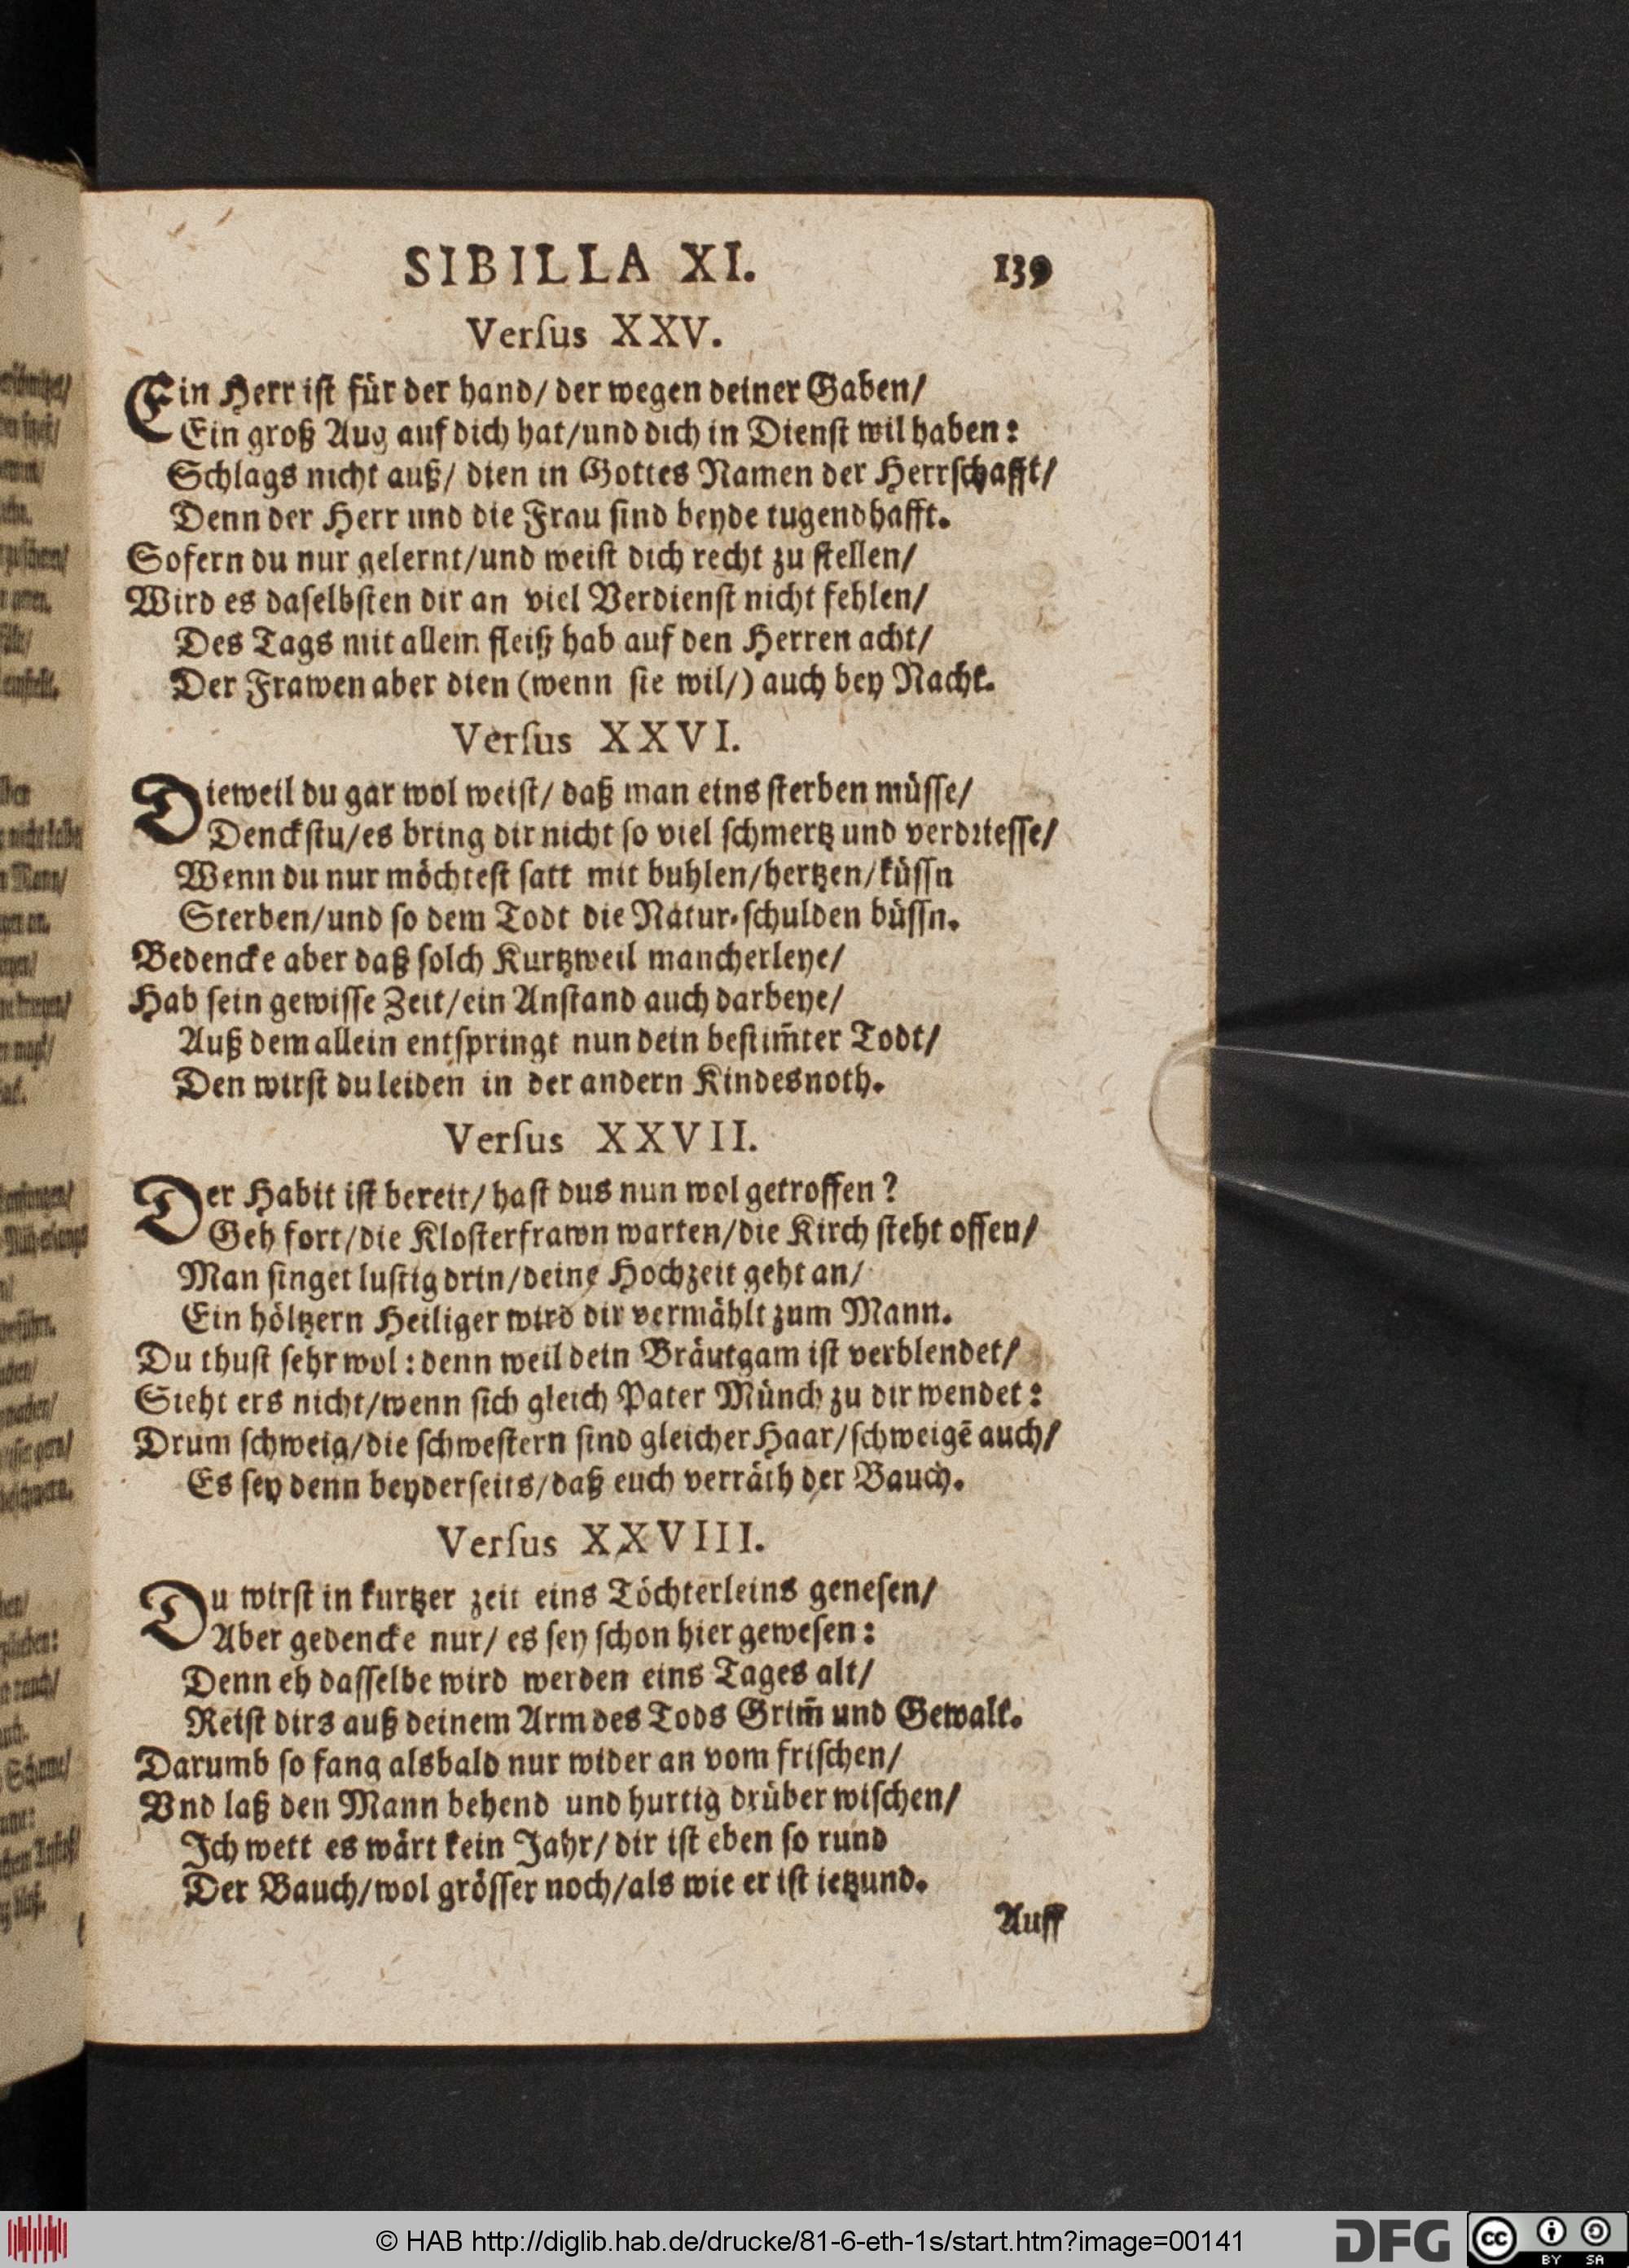 SIBILLA XI. 139
Verſus XXV.
Ein Herr iſt für der hand/ der wegen deiner Gaben/
Ein groß Aug auf dich hat/und dich in Dienſt wil haben:
Schlags nicht auß/ dien in Gottes Namen der Herrſchafft/
Denn der Herr und die Frau ſind beyde tugendhafft.
Sofern du nur gelernt/und weiſt dich recht zu ſtellen/
Wird es daſelbſten dir an viel Verdienſt nicht fehlen/
Des Tags mit allem fleiß hab auf den Herren acht/
Der Frawen aber dien (wenn ſie wil/) auch bey Nacht.
Verſus XXVI.
Dieweil du gar wol weiſt/ daß man eins ſterben müſſe/
Denckſtu/es bring dir nicht ſo viel ſchmertz und verdrieſſe/
Wenn du nur möchteſt ſatt mit buhlen/hertzen/küſſn
Sterben/und ſo dem Todt die Natur-ſchulden büſſn.
Bedencke aber daß ſolch Kurtzweil mancherleye/
Hab ſein gewiſſe Zeit/ein Anſtand auch darbeye/
Auß dem allein entſpringt nun dein beſtim̄ter Todt/
Den wirſt du leiden in der andern Kindesnoth.
Verſus XXVII.
Der Habit iſt bereit/ haſt dus nun wol getroffen?
Geh fort/die Kloſterfrawn warten/die Kirch ſteht offen/
Man ſinget luſtig drin/deine Hochzeit geht an/
Ein höltzern Heiliger wird dir vermählt zum Mann.
Du thuſt ſehr wol: denn weil dein Bräutgam iſt verblendet/
Sieht ers nicht/wenn ſich gleich Pater Münch zu dir wendet:
Drum ſchweig/die ſchweſtern ſind gleicher Haar/ſchweigē auch/
Es ſey denn beyderſeits/daß euch verräth der Bauch.
Verſus XXVIII.
Du wirſt in kurtzer zeit eins Töchterleins geneſen/
Aber gedencke nur/ es ſey ſchon hier geweſen:
Denn eh daſſelbe wird werden eins Tages alt/
Reiſt dirs auß deinem Arm des Tods Grim̄ und Gewalt.
Darumb ſo fang alsbald nur wider an vom friſchen/
Vnd laß den Mann behend und hurtig drüber wiſchen/
Ich wett es wärt kein Jahr/ dir iſt eben ſo rund
Der Bauch/wol gröſſer noch/als wie er iſt ietzund.
Auff
© HAB http://diglib.hab.de/drucke/81-6-eth-1s/start.htm?image=00141
DFG
cc BY SA